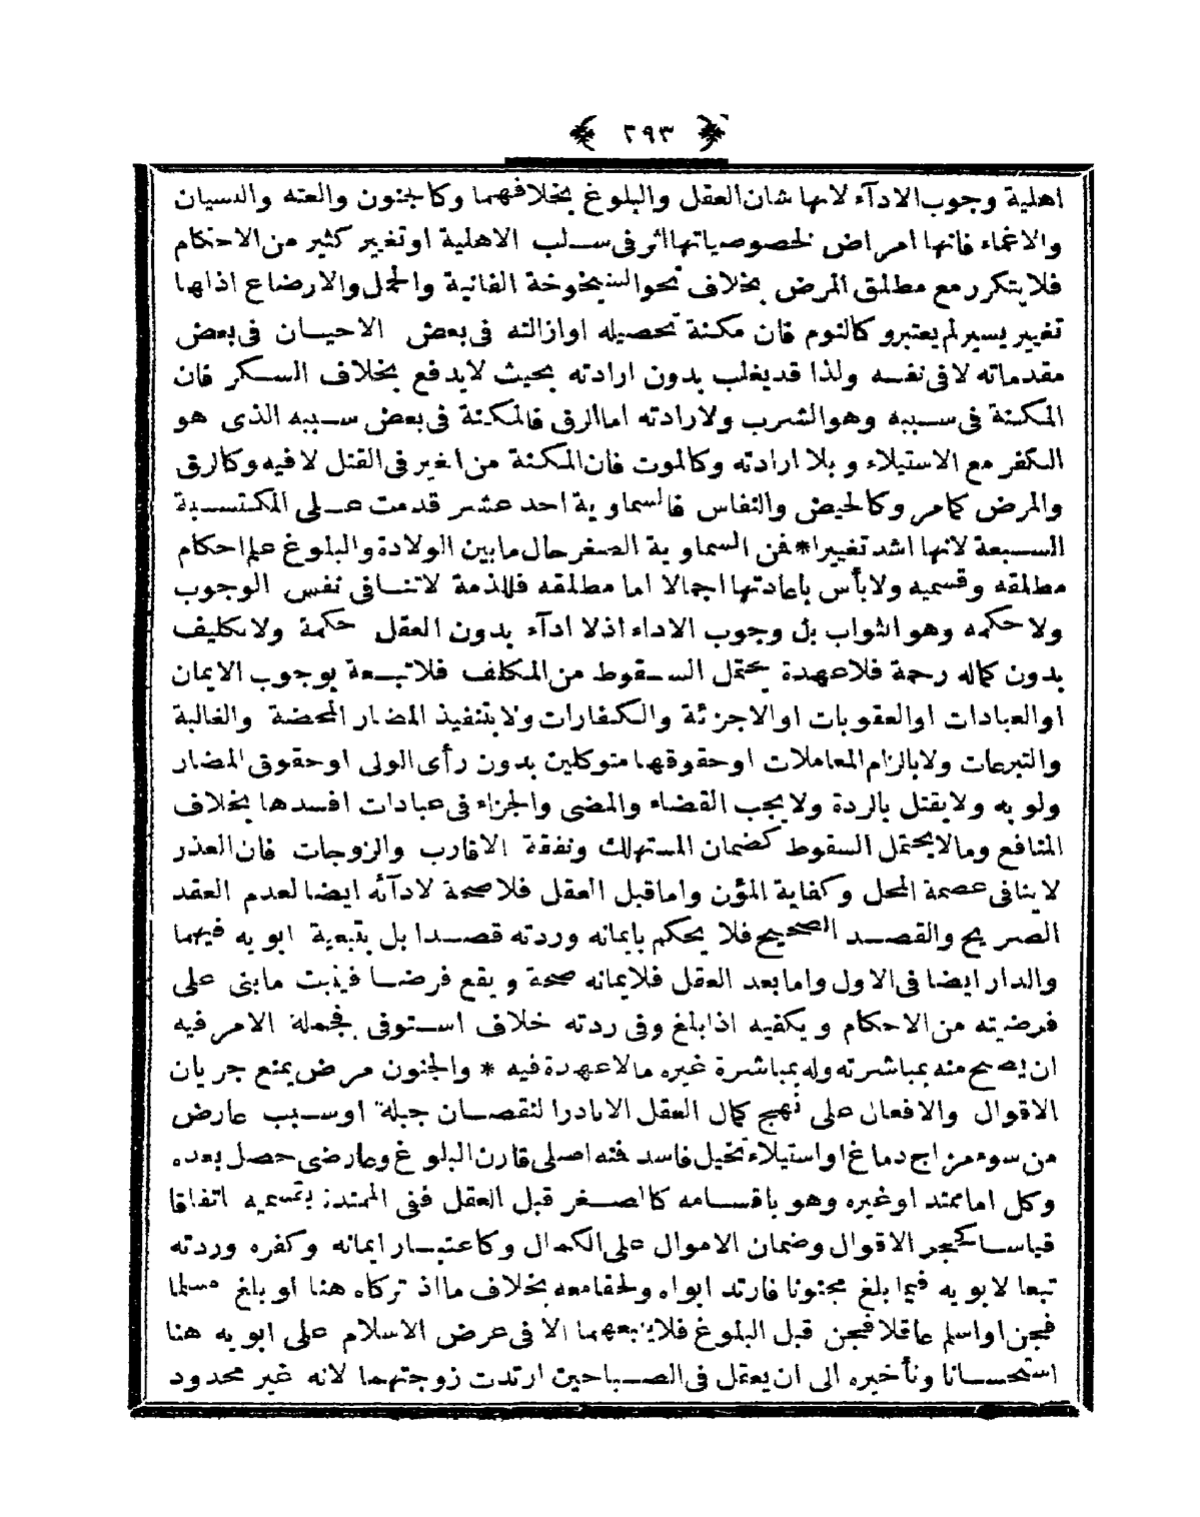 ﴿ ٢٩٣ ﴾
اهلية وجوب الادآء لانها شان العقل والبلوغ بخلافهما وكالجنون والعته والنسيان
والاغماء فانها امراض لخصوصياتها اثر فى سلب الاهلية او تغيير كثير من الاحكام
فلا يتكرر مع مطلق المرض بخلاف نحو الشيخوخة الفانية والحمل والارضاع اذلها
تغيير يسير لم يعتبر وكالنوم فان مكنة تحصيله اوازالته فى بعض الاحيان فى بعض
مقدماته لا فى نفسه ولذا قد يغلب بدون ارادته بحيث لايدفع بخلاف السكر فان
المكنة فى سببه وهو الشرب ولارادته اما الرق فالمكنة فى بعض سببه الذى هو
الكفر مع الاستيلاء و بلا ارادته وكالموت فان المكنة من الغير فى القتل لا فيه وكالرق
والمرض كمامر وكالحيض والنفاس فالسماوية احد عشر قدمت على المكتسبة
السبعة لانها اشد تغييرا * فمن السماوية الصغر حال مابين الولادة والبلوغ علم احكام
مطلقه وقسميه ولابأس باعادتها اجمالا اما مطلقه فللذمة لاتنافى نفس الوجوب
ولا حكمه وهو الثواب بل وجوب الاداء اذلا ادآء بدون العقل حكمة ولاتكليف
بدون كماله رحمة فلاعهدة يحتمل السقوط من المكلف فلاتبعة بوجوب الايمان
او العبادات او العقوبات اوالاجزئة والكفارات ولا بتنفيذ المضار المحضة والغالبة
والتبرعات ولابالزام المعاملات اوحقوقها متوكلين بدون رأى الولى اوحقوق المضار
ولو به ولا يقتل بالردة ولا يجب القضاء والمضى والجزاء فى عبادات افسدها بخلاف
المنافع ومالايحتمل السقوط كضمان المستهلك ونفقة الاقارب والزوجات فان العذر
لا ينافى عصمة المحل وكفاية المؤن واماقبل العقل فلا صحة لادآئه ايضا لعدم العقد
الصريح والقصد الصحيح فلا يحكم بايمانه وردته قصدا بل بتبعية ابويه فيهما
والدار ايضا فى الاول وامابعد العقل فلايمانه صحة ويقع فرضا فيثبت مابنى على
فرضيته من الاحكام ويكفيه اذا بلغ وفى ردته خلاف استوفى فجملة الامر فيه
ان يصح منه بمباشرته وله بمباشرة غيره مالاعهدة فيه * والجنون مرض يمنع جريان
الاقوال والافعال على نهج كمال العقل الانادرا لنقصان جبلة اوسبب عارض
من سوء مزاج دماغ او استيلاء تخيل فاسد فمنه اصلى قارن البلوغ وعارضى حصل بعده
وكل اما ممتد اوغيره وهو باقسامه كالصغر قبل العقل ففى الممتد بقسميه اتفاقا
قياسا كحجر الاقوال وضمان الاموال على الكمال وكاعتبار ايمانه وكفره وردته
تبعا لابويه فيما بلغ مجنونا فارتد ابواه ولحقا معه بخلاف مااذ تركاه هنا او بلغ مسلما
فجن او اسلم عاقلا فجن قبل البلوغ فلايتبعهما الا فى عرض الاسلام على ابويه هنا
استحسانا وتأخيره الى ان يعقل فى الصبا حين ارتدت زوجتهما لانه غير محدود